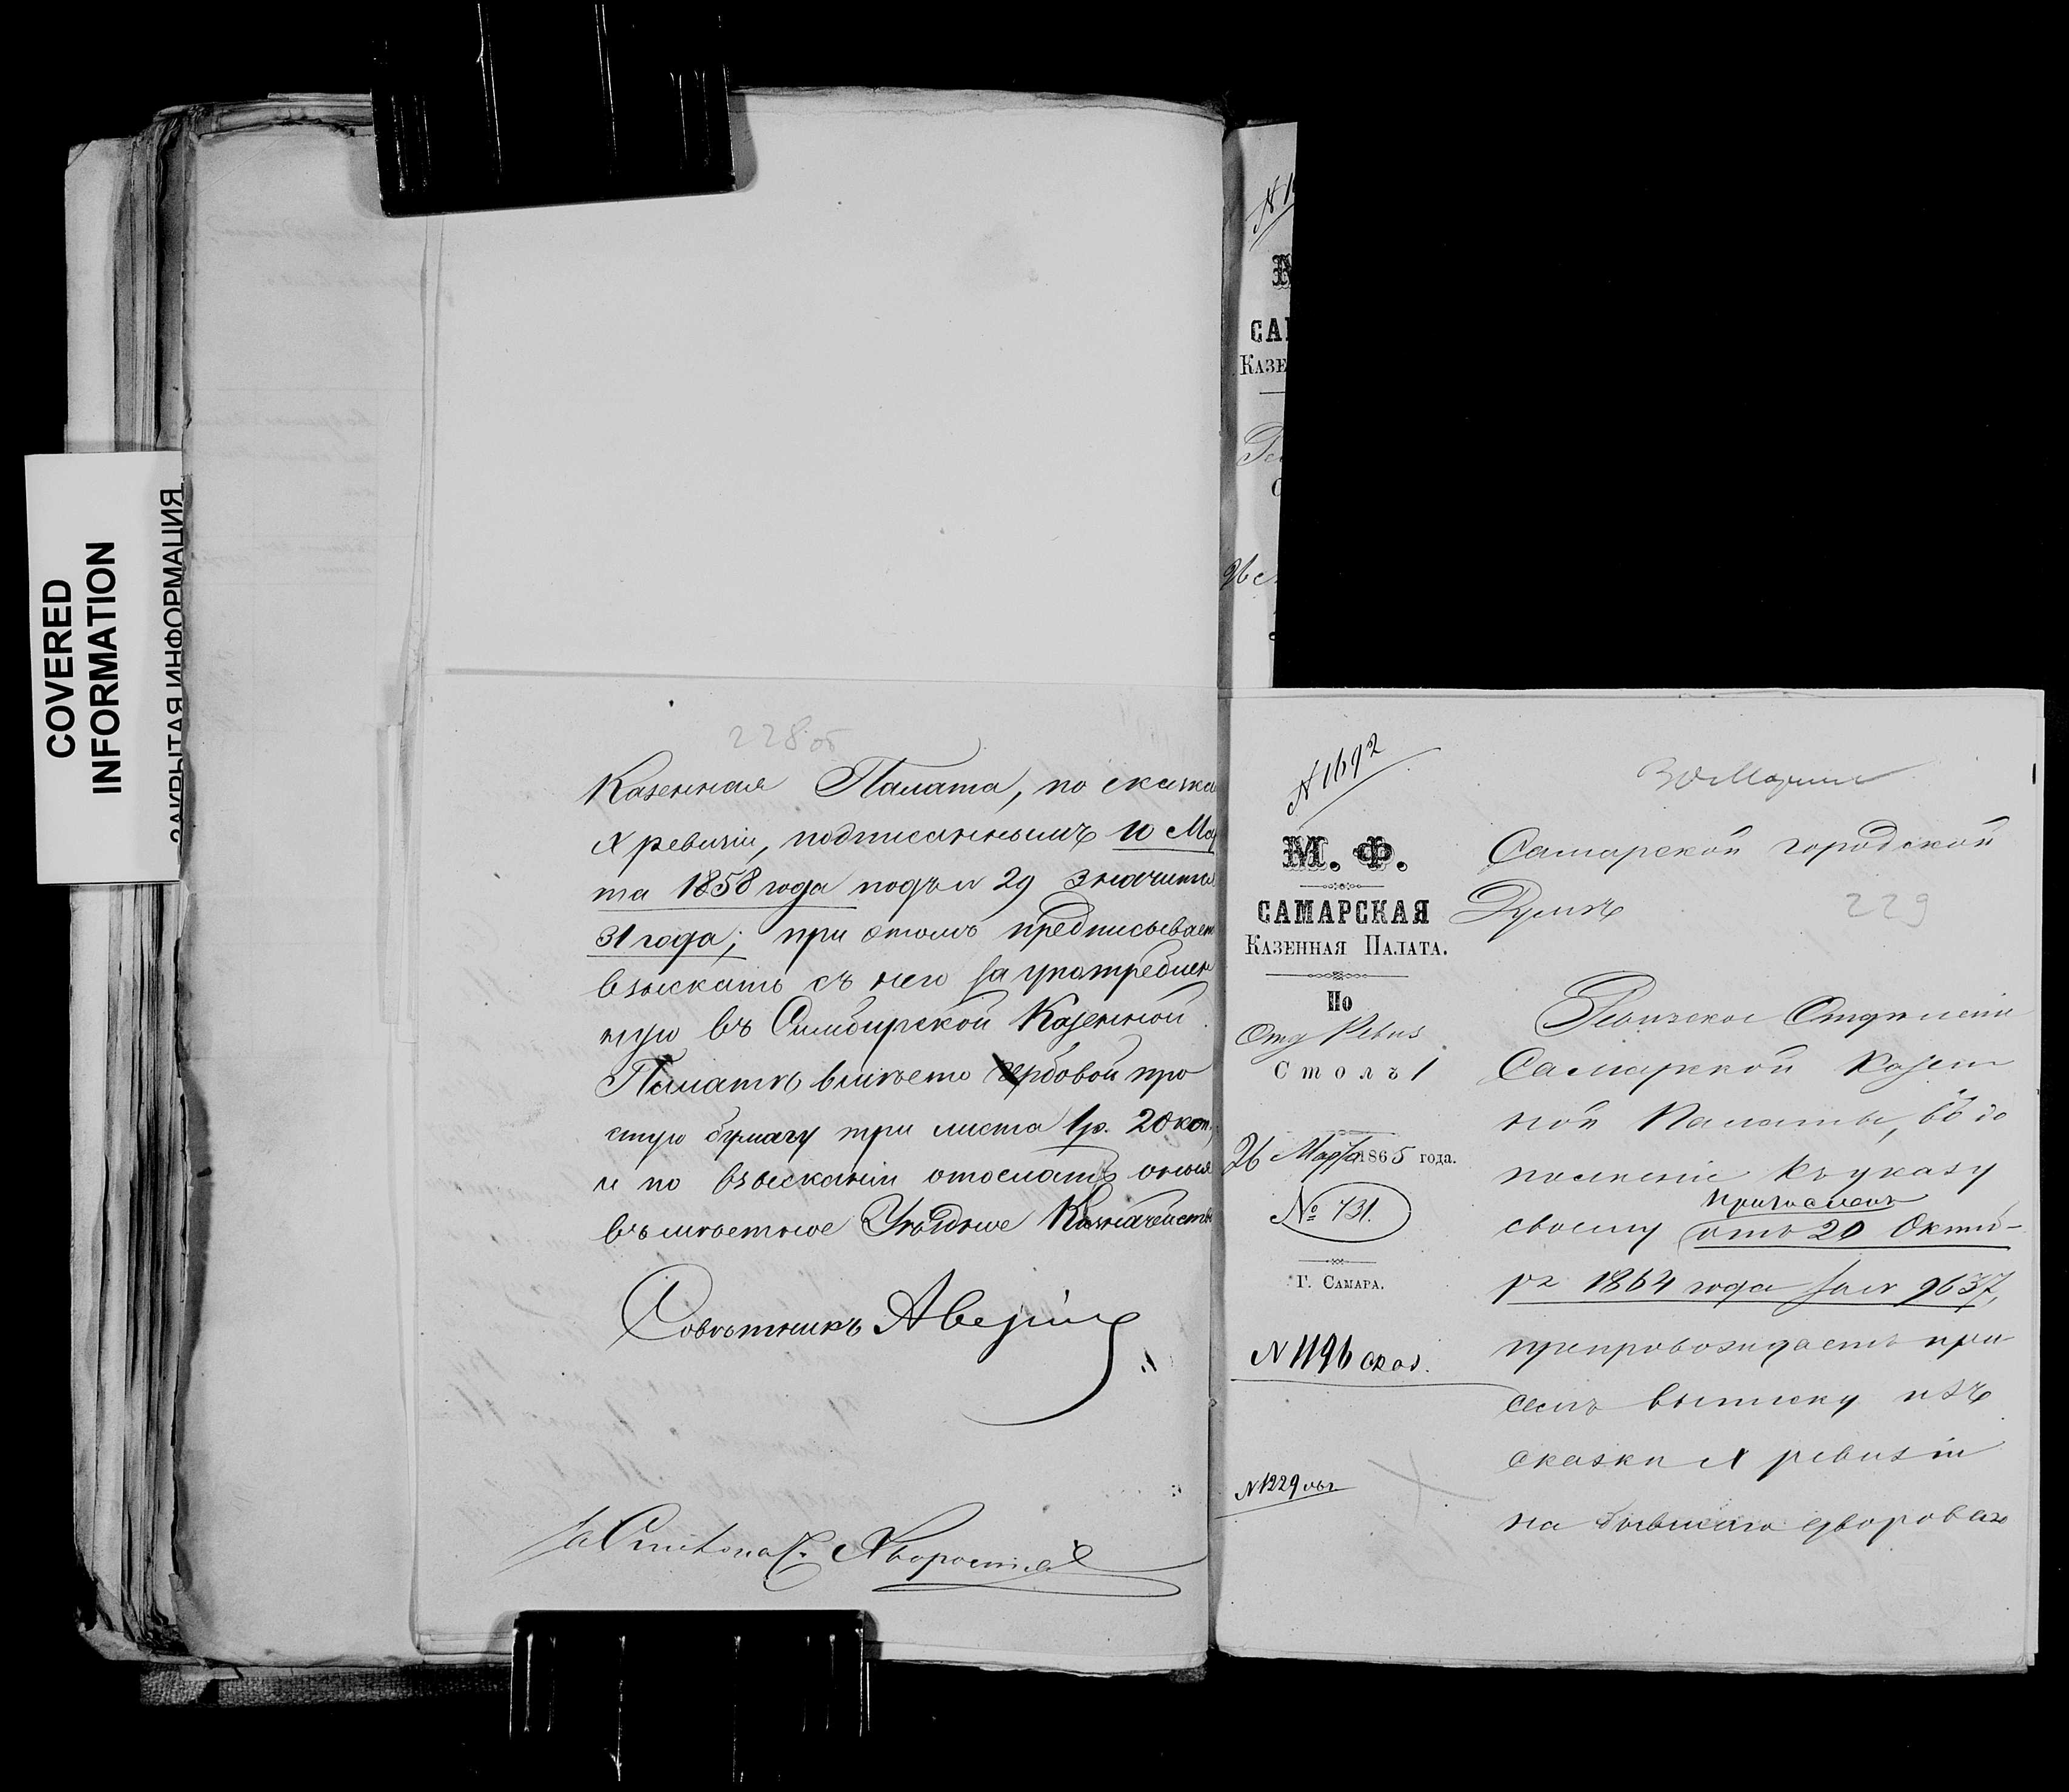 COVERED
INFORMATION
ЗАКРЫТАЯ ИНФОРМАЦИЯ
228 об
Казенная Палата, по сказка
X ревизіи, подписаннымъ 10 Мар
та 1858 года подъ N 29 значится
31 года; при этомъ предписывает
взыскать съ него за употреблен
ную въ Симбирской Казенной
Палатѣ вмѣсто гербовой про
стую бумагу три листа 1 р. 20 коп,
и по взысканіи отослать оныя
въ мѣстное Уѣздное Казначейство
Совѣтникъ
N 1
САМ
КАЗЕ
N 1692
30 Марта
М. Ф.
САМАРСКАЯ
КАЗЕННАЯ ПАЛАТА.
По
Отд Ревиз
Столъ 1
26 Марта 1865 года.
№ 731.
Г. САМАРА.
N 1196 сказ.
N 1229
Самарской городской
Думѣ
229
Ревизское Отдѣленіе
Самарской Казен
ной Палаты, въ до
полненіе къ указу
своему отъ 20 Октяб-
ря 1864 года за N 9637,
препровождаетъ при
семъ выписку изъ
сказки X ревизіи
на бывшаго дворовага